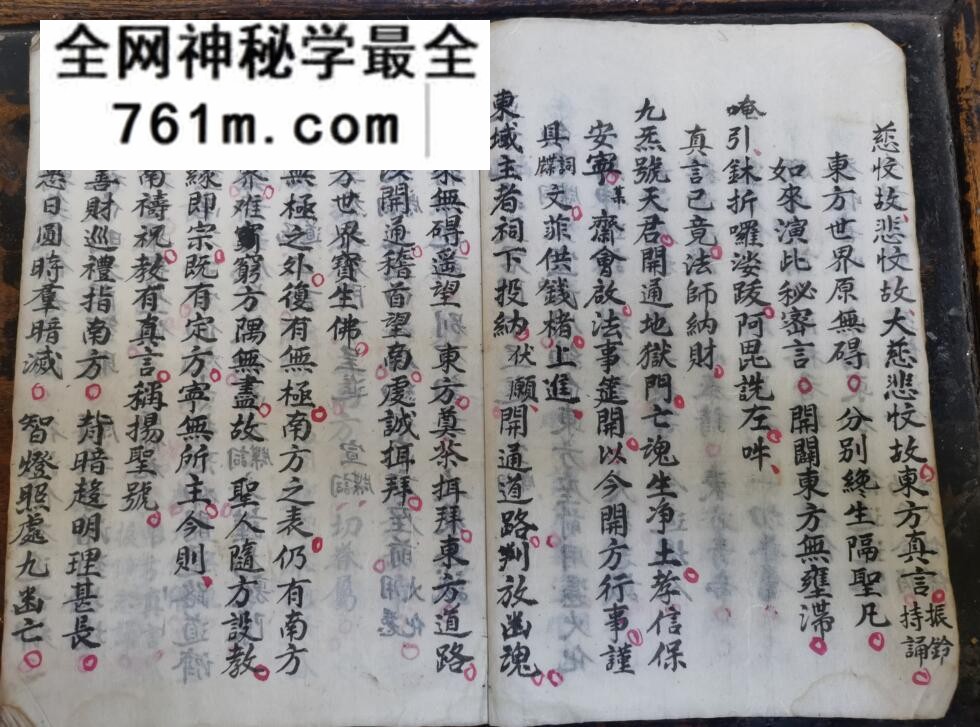 全网神秘学最全
761m.com
慈忟故悲忟故大慈悲忟故東方真言振鈴持誦
東方世界原無碍 分别纔生隔聖凡
如來演此秘密言 開闢東方無壅滞
唵引鉢折囉㳵䟦阿毘詵左吽
真言已竟法師納財
九炁號天君開通地獄門亡魂生净土孝信保
安寧 齋會啟法事筵開以今開方行事謹
具牒詞文菲供錢楮上進
東域主者祠下投納伏願開通道路判放幽魂
來無碍遥望 東方奠茶揖拜東方道路
以開通稽首望南虔誠揖拜
方世界寶生佛
無極之外復有無極南方之表仍有南方
界难窮窮方隅無盡故聖人隨方設教
緣即宗既有定方寧無所主今則
南禱祝教有真言稱揚聖號
善財巡禮指南方 背暗趍明理甚長
慈日圓時羣暗滅 智燈照處九幽亡